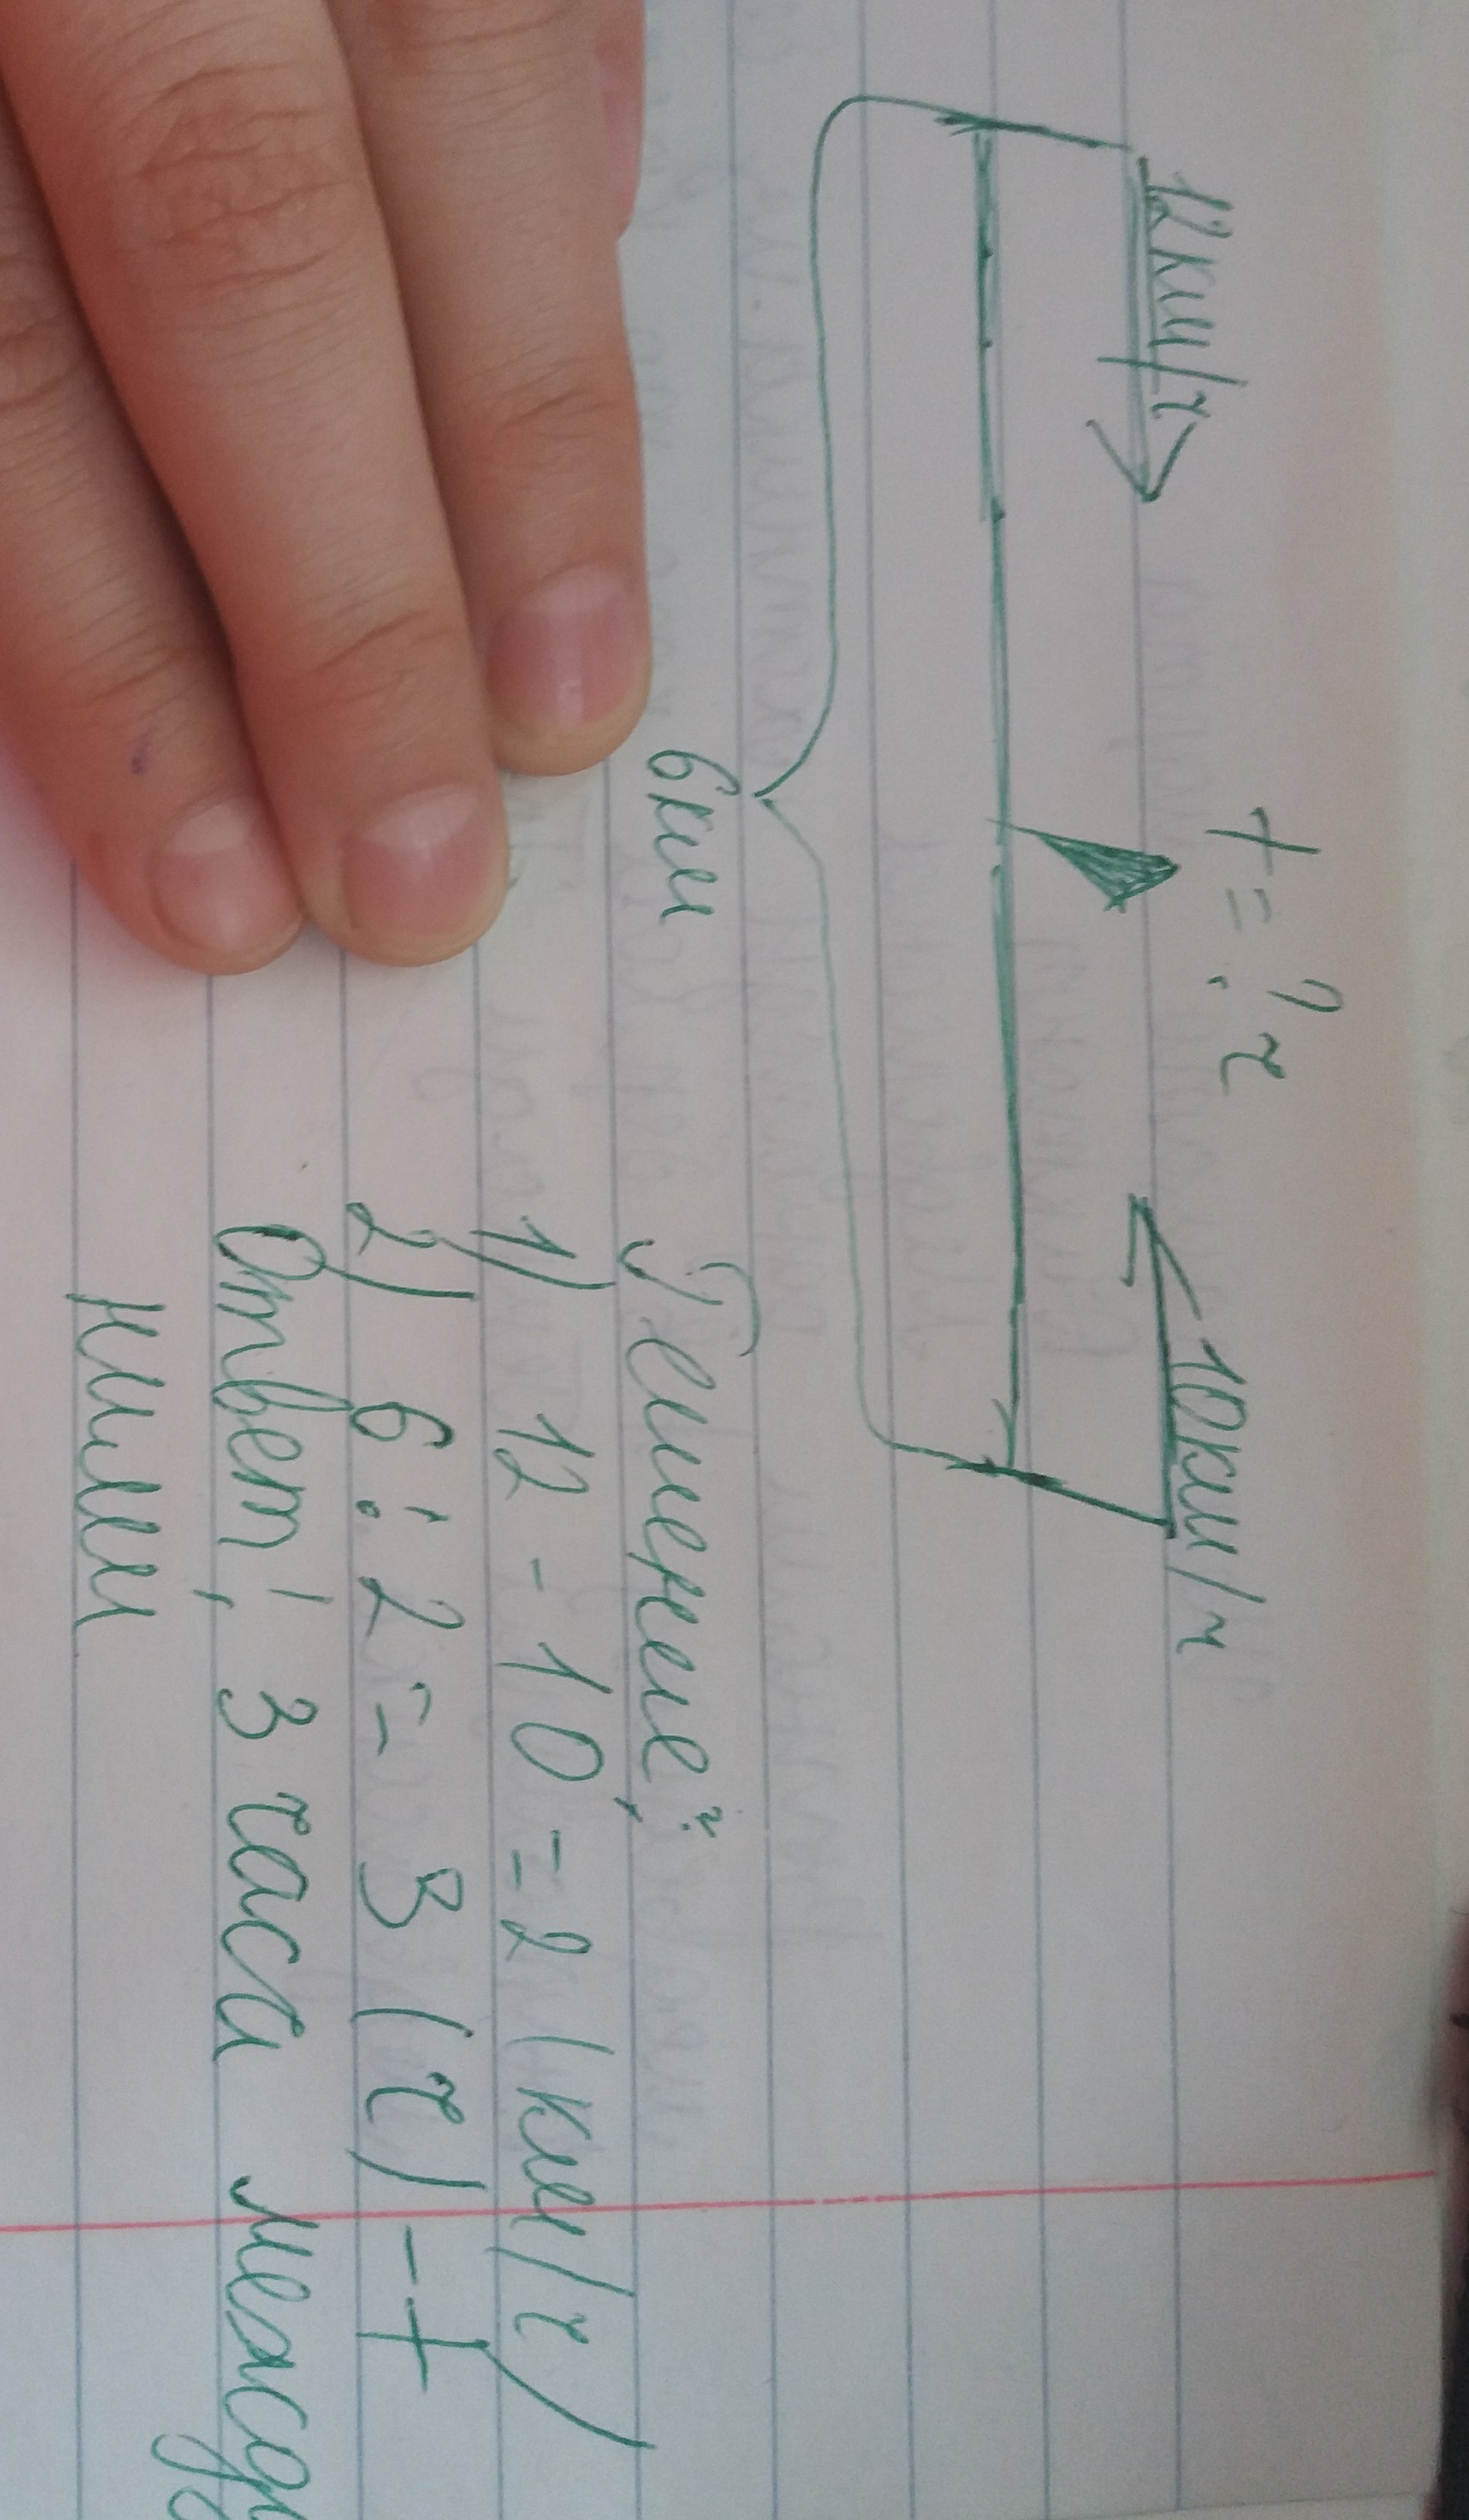 t = ? ч
12км/ч 10км/ч
6км
Решение:
1) 12 - 10 = 2 (км/ч)
2) 6 : 2 = 3 (ч) - t
Ответ: 3 часа между
ними